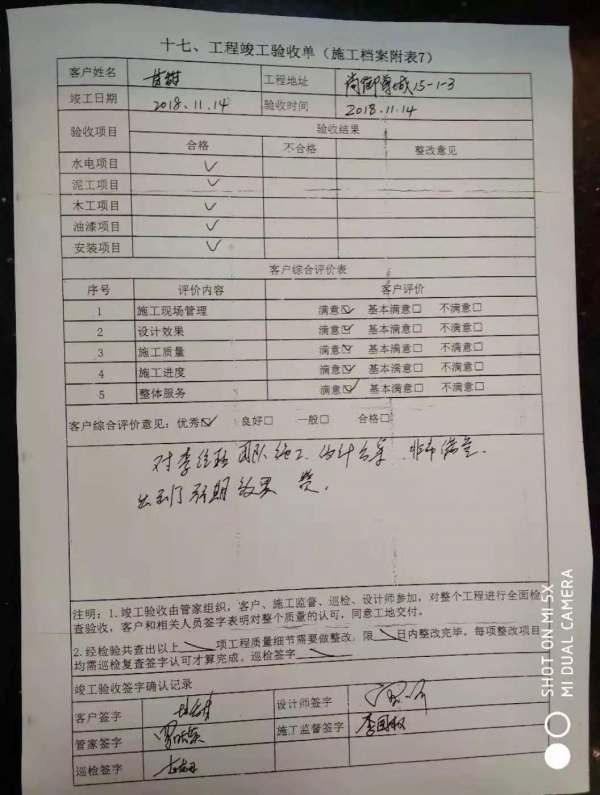 十七、工程竣工验收单（施工档案附表7）
客户姓名 甘甜 工程地址 尚御尊城15-1-3
竣工日期 2018.11.14 验收时间 2018.11.14
验收项目 验收结果
合格 不合格 整改意见
水电项目 ✓
泥工项目 ✓
木工项目 ✓
油漆项目 ✓
安装项目 ✓
客户综合评价表
序号 评价内容 客户评价
1 施工现场管理 满意☑ 基本满意□ 不满意□
2 设计效果 满意☑ 基本满意□ 不满意□
3 施工质量 满意☑ 基本满意□ 不满意□
4 施工进度 满意☑ 基本满意□ 不满意□
5 整体服务 满意☑ 基本满意□ 不满意□
客户综合评价意见：优秀☑ 良好□ 一般□ 合格□
对李 团队施工、设计 非常满意。
到了预期效果 赞。
注明：1.竣工验收由管家组织，客户、施工监督、巡检、设计师参加，对整个工程进行全面检
查验收，客户和相关人员签字表明对整个质量的认可，同意工地交付。
2.经检验共查出以上 项工程质量细节需要做整改，限 日内整改完毕，每项整改项目
均需巡检复查签字认可才算完成。巡检签字
竣工验收签字确认记录
客户签字 设计师签字
管家签字 施工监督签字 李国权
巡检签字
SHOT ON MI 5X
MI DUAL CAMERA